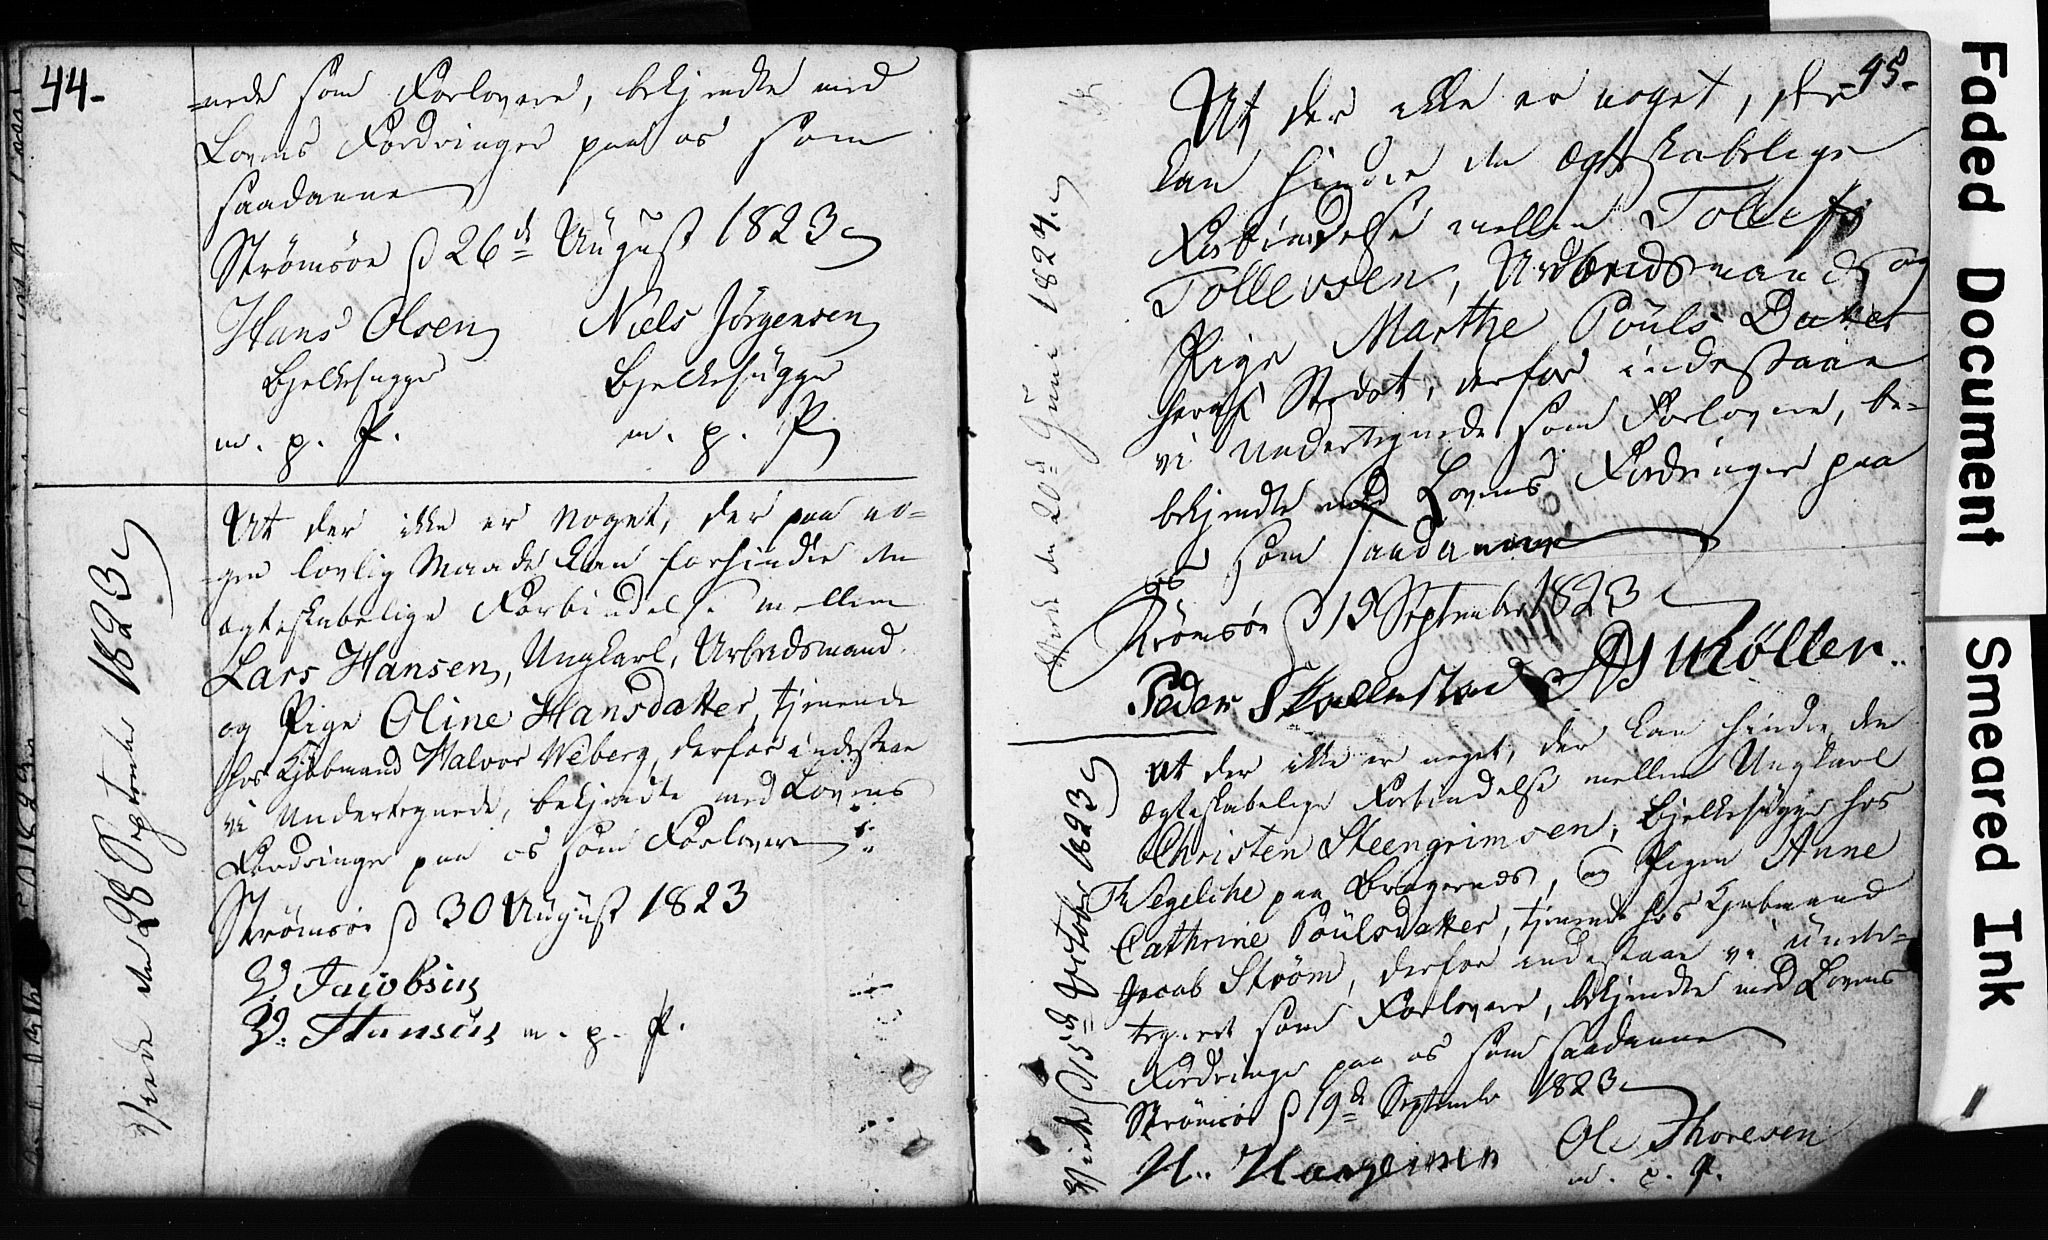 44-
=nede som Forlovere, bekjendte med
Lovens Fordringer paa os som
saadanne
Strømsøe d 26de August 1823
Hans Olsen Niels Jørgensen
Bjelkehugger Bjelkehugger
m. p. P. m. p. P
At der ikke er noget, der paa no=
=gen lovlig Maade kan forhindre den
ægteskabelige Forbindelse mellem
Lars Hansen, Ungkarl, Arbeidsmand
og Pige Oline Hansdatter, tjenende
hos Kjøbmand Halvor Weberg, derfor indestaae
vi Undertegnede, bekjendte med Lovens
Fordringer paa os som Forlovere
Strømsøe d 30 August 1823
Jacobsen
Hansen m. p. P.
Viede den 28 September 1823
-45-
At der ikke er noget, der
kan hindre den ægteskabelige
Forbindelse mellem Tollef
Tollevsen, Arbeidsmand, og
Pige Marthe Pouls Datter
her af Stedet, derfor indestaae
vi Undertegnede som Forlovere, be=
bekjendte med Lovens Fordringer paa
os som saadanne
Strømsøe d 15 September 1823
Peder Møller
Viede den 20de Juni 1824.
At der ikke er noget, der kan hindre den
ægteskabelige Forbindelse mellem Ungkarl
Christen Steengrimsen, Bjelkehugger hos
Th Segelche paa Bragernæs, og Pigen Anne
Cathrine Poulsdatter, tjenende hos Kjøbmand
Jacob Strøm, derfor indestaae vi Under=
tegnet som Forlovere, bekjendte med Lovens
Fordringer paa os som saadanne
Strømsøe d 19de September 1823
Ole Thoresen
m. p. P.
Viede d 15de October 1823
Faded Document
Smeared Ink